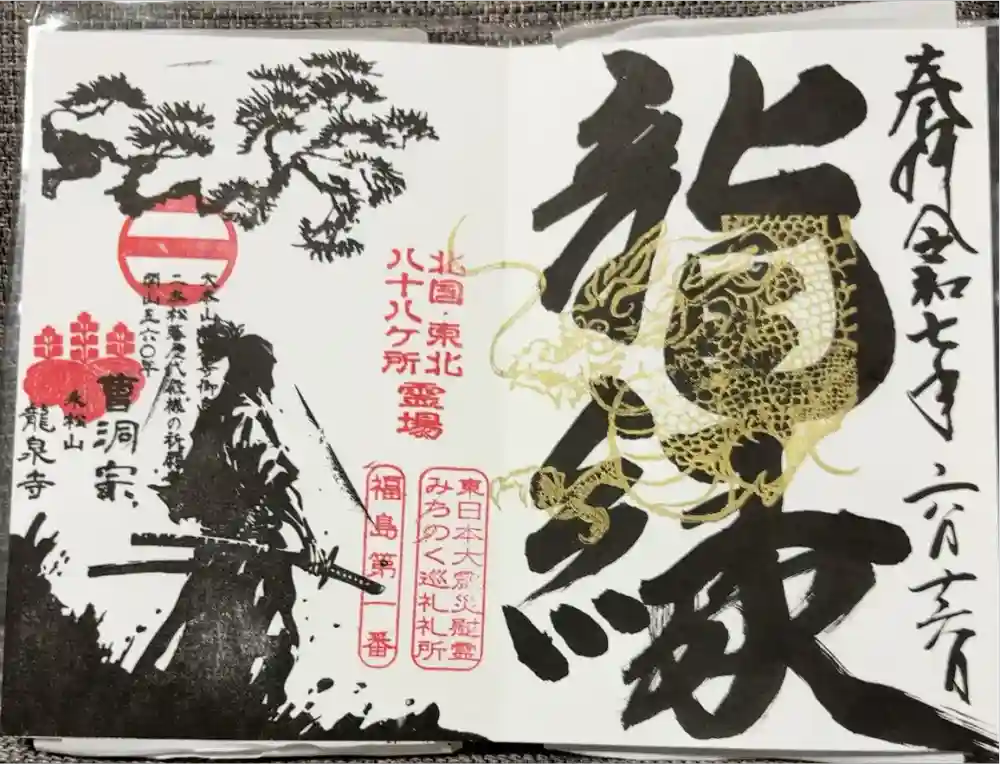 奉拝 令和七年 六月十六日
龍縁
北国・東北
八十八ヶ所
霊場
東日本大震災慰霊
みちのく巡礼札所
福島第一番
大本山總持寺御
二本松藩歴代殿様の祈願
開山五六〇年
曹洞宗
永松山
龍泉寺